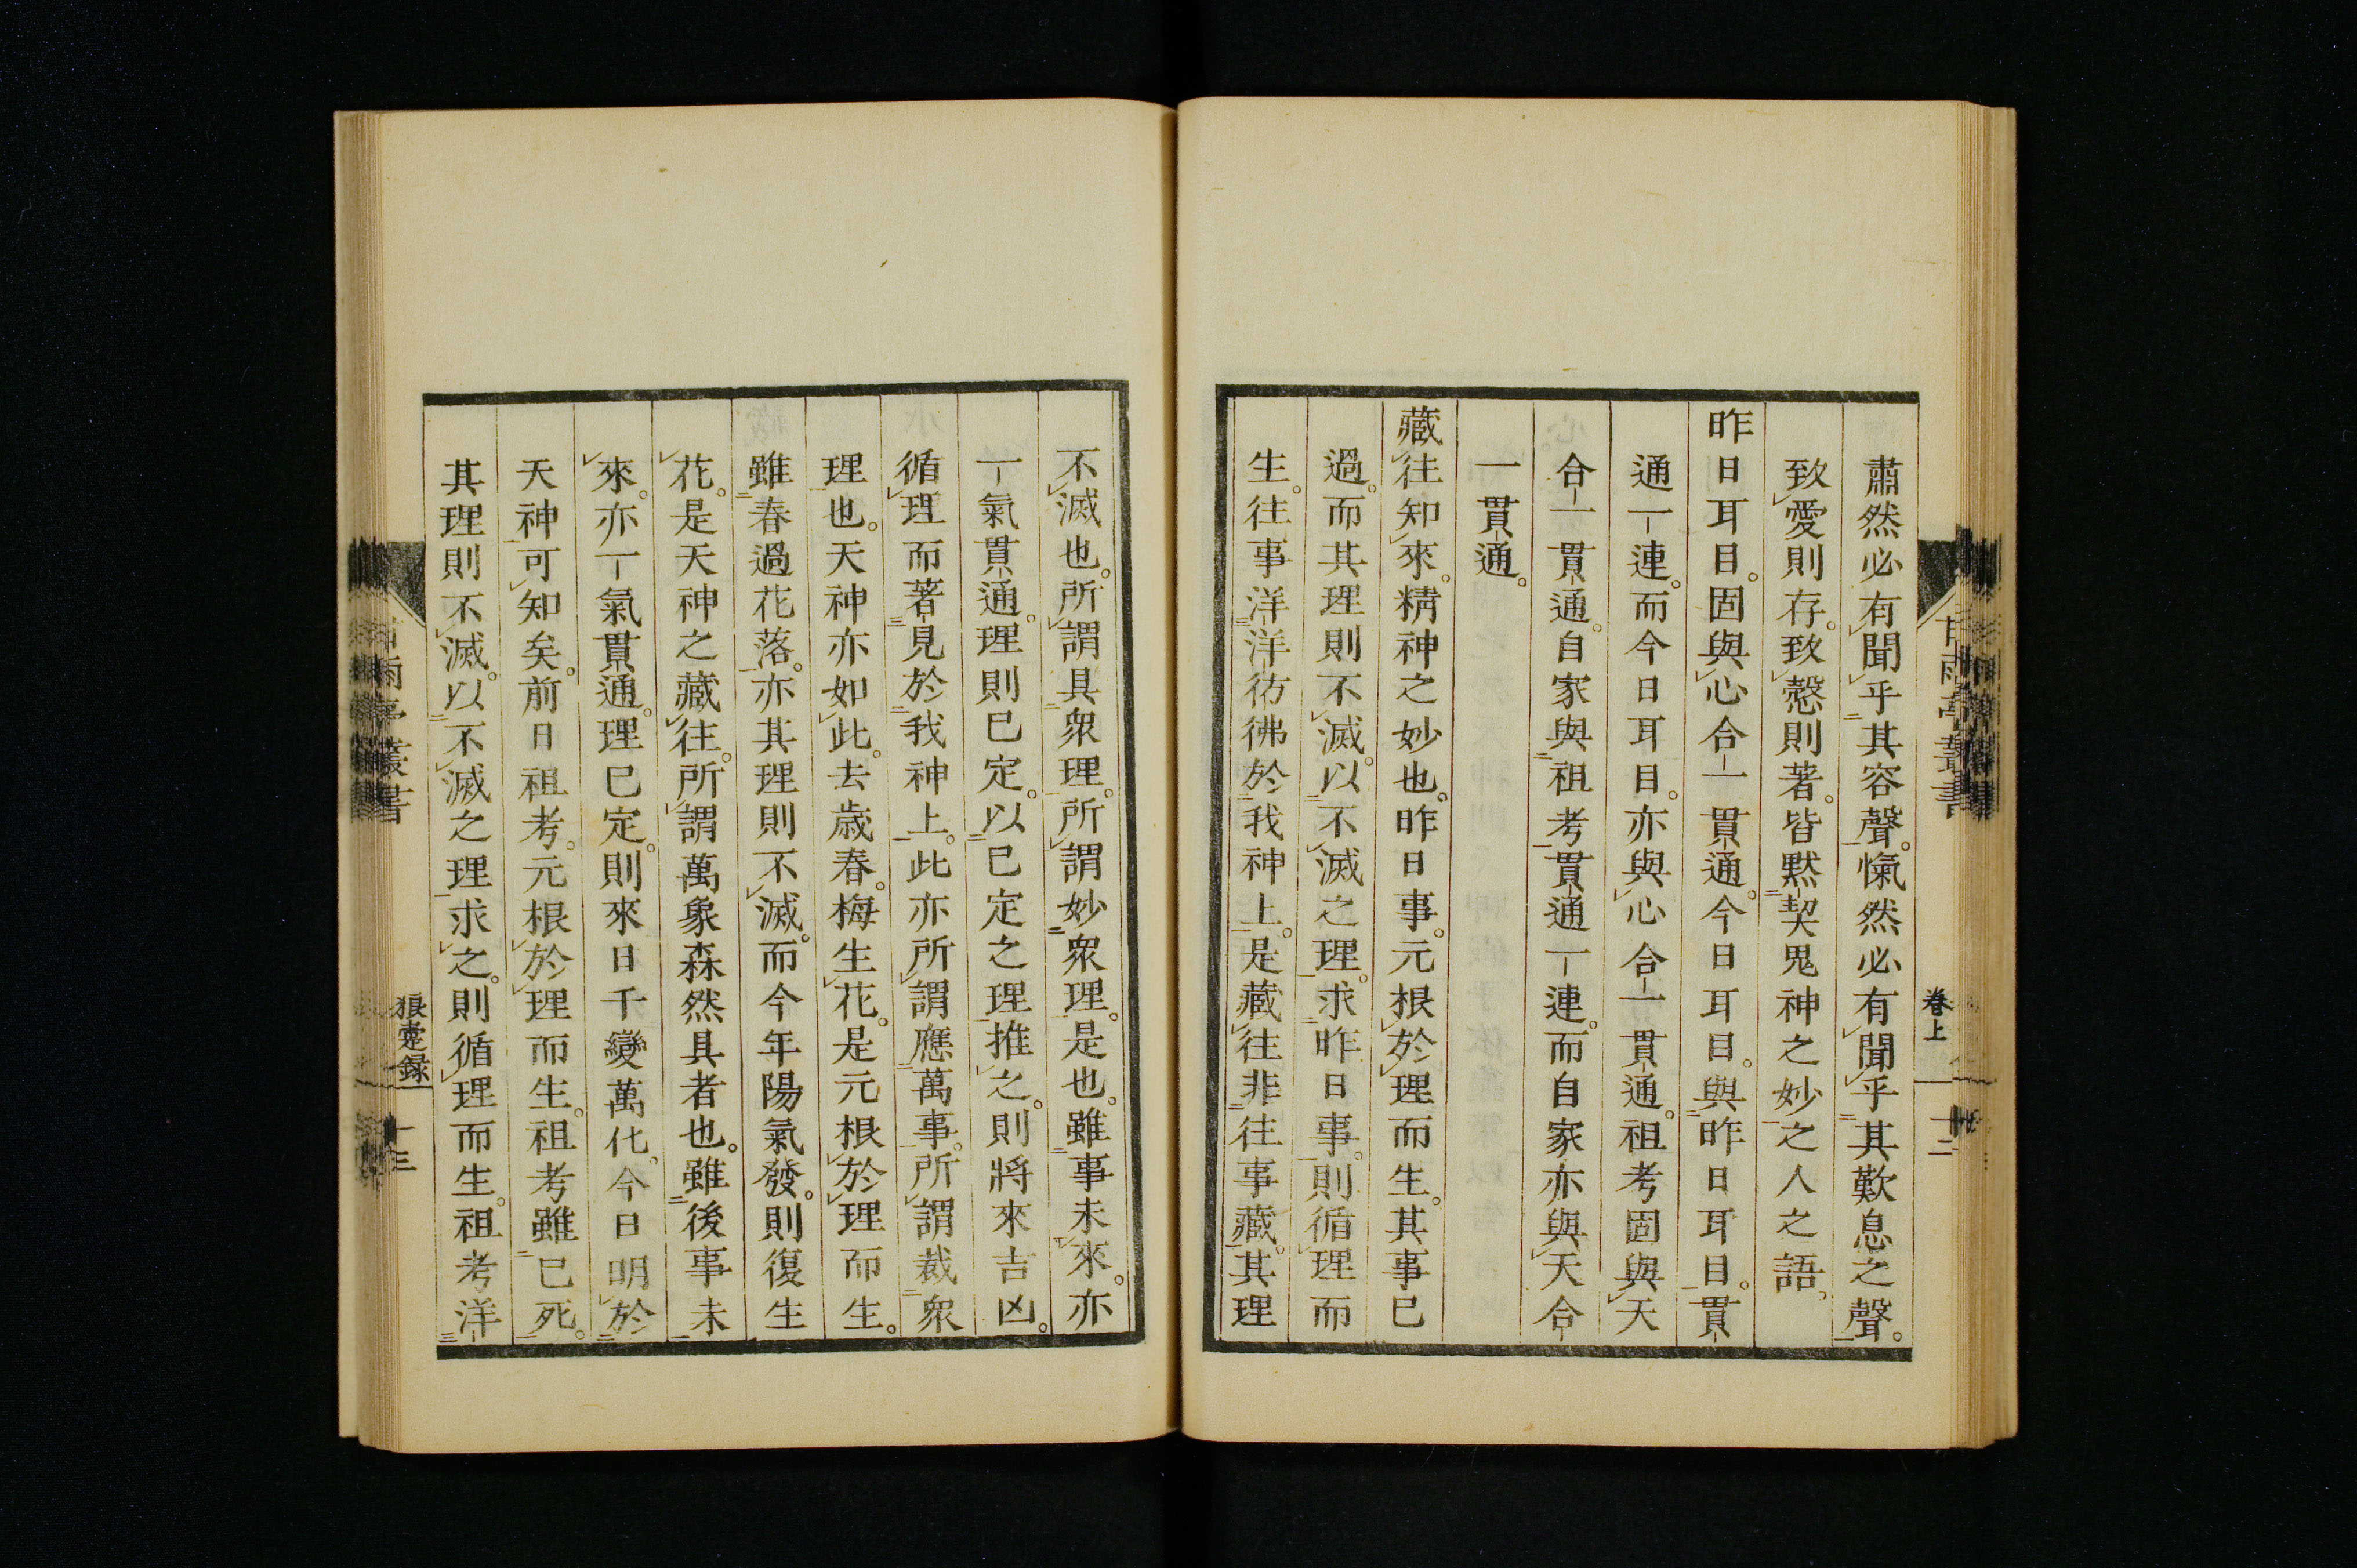 甘雨亭叢書
卷上
十二
肅然必有聞乎其容聲。愾然必有聞乎其歎息之聲。
致愛則存。致愨則著。皆黙契鬼神之妙之人之語。
昨日耳目。固與心合一貫通。今日耳目。與昨日耳目。貫
通一連。而今日耳目。亦與心合一貫通。祖考固與天
合一貫通。自家與祖考貫通一連。而自家亦與天合
一貫通。
藏往知來。精神之妙也。昨日事。元根於理而生。其事已
過。而其理則不滅。以不滅之理。求昨日事。則循理而
生。往事洋洋彷彿於我神上。是藏往非往事藏。其理
不滅也。所謂具衆理。所謂妙衆理。是也。雖事未來。亦
一氣貫通。理則已定。以已定之理推之。則將來吉凶。
循理而著見於我神上。此亦所謂應萬事。所謂裁衆
理也。天神亦如此。去歲春。梅生花。是元根於理而生。
雖春過花落。亦其理則不滅。而今年陽氣發。則復生
花。是天神之藏往。所謂萬象森然具者也。雖後事未
來。亦一氣貫通。理已定。則來日千變萬化。今日明於
天神可知矣。前日祖考。元根於理而生。祖考雖已死。
其理則不滅。以不滅之理求之。則循理而生。祖考洋
雨亭叢書
狼疐録
十三